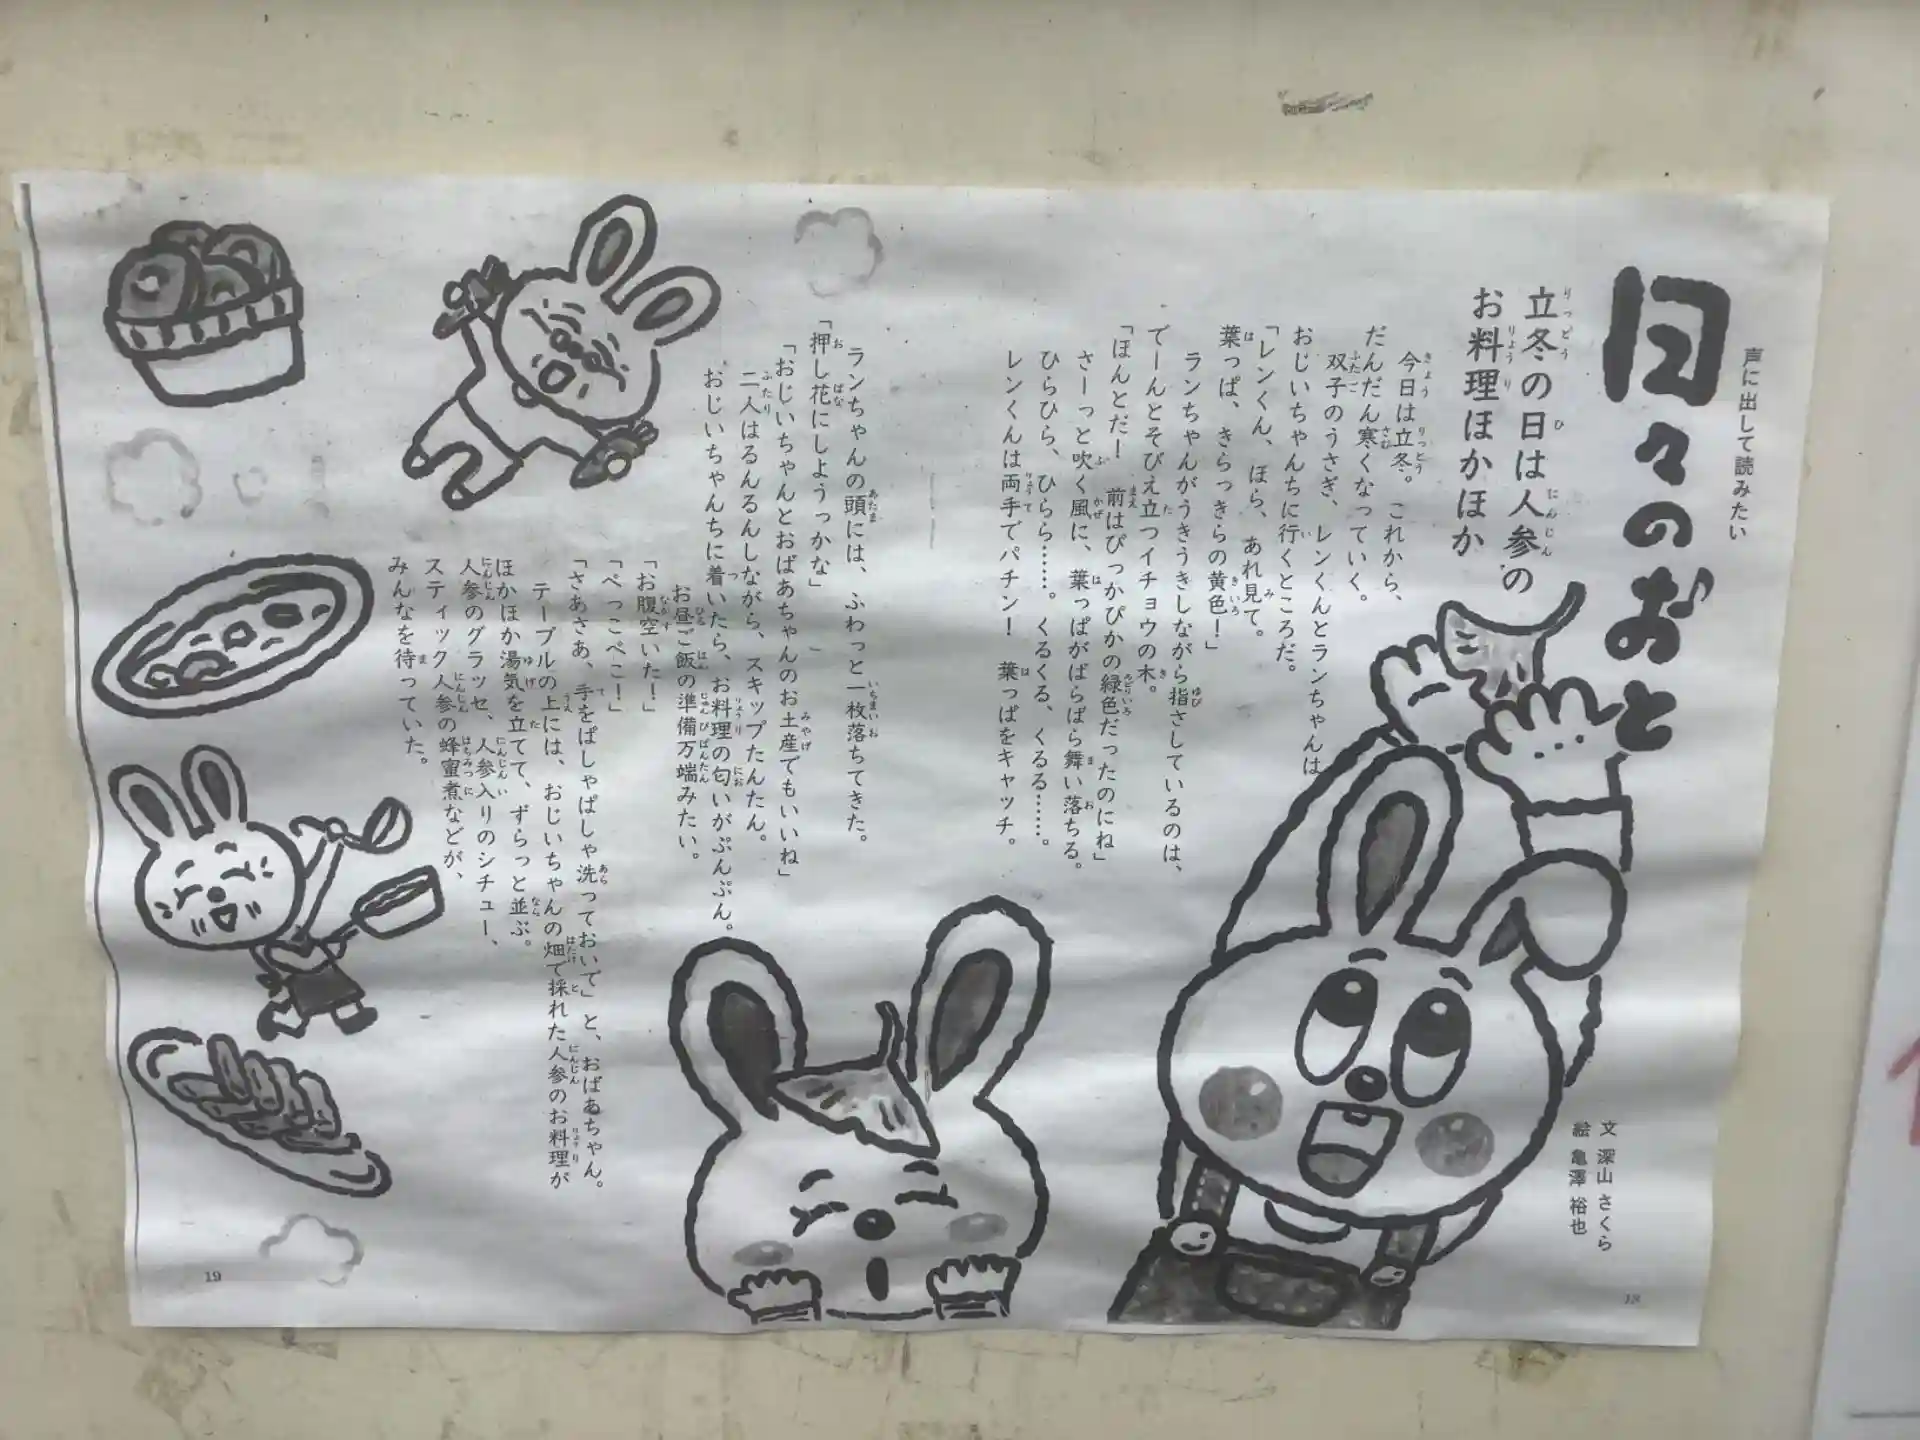 声に出して読みたい
日々のおと
立冬の日は人参の
お料理ほかほか
文 深山 さくら
絵 亀澤 裕也
今日は立冬。これから、
だんだん寒くなっていく。
双子のうさぎ、レンくんとランちゃんは
おじいちゃんちに行くところだ。
「レンくん、ほら、あれ見て。
葉っぱ、きらっきらの黄色!」
ランちゃんがうきうきしながら指さしているのは、
でーんとそびえ立つイチョウの木。
「ほんとだー 前はぴっかぴかの緑色だったのにね」
さーっと吹く風に、葉っぱがぱらぱら舞い落ちる。
ひらひら、ひらら……。くるくる、くるる……。
レンくんは両手でパチン! 葉っぱをキャッチ。
ランちゃんの頭には、ふわっと一枚落ちてきた。
「押し花にしようっかな」
「おじいちゃんとおばあちゃんのお土産でもいいね」
二人はるんるんしながら、スキップたんたん。
おじいちゃんちに着いたら、お料理の匂いがぷんぷん。
お昼ご飯の準備万端みたい。
「お腹空いた!」
「ぺっこぺこ!」
「さあさあ、手をぱしゃぱしゃ洗っておいで」と、おばあちゃん。
テーブルの上には、おじいちゃんの畑で採れた人参のお料理が
ほかほか湯気を立てて、ずらっと並ぶ。
人参のグラッセ、人参入りのシチュー、
スティック人参の蜂蜜煮などが、
みんなを待っていた。
18
19